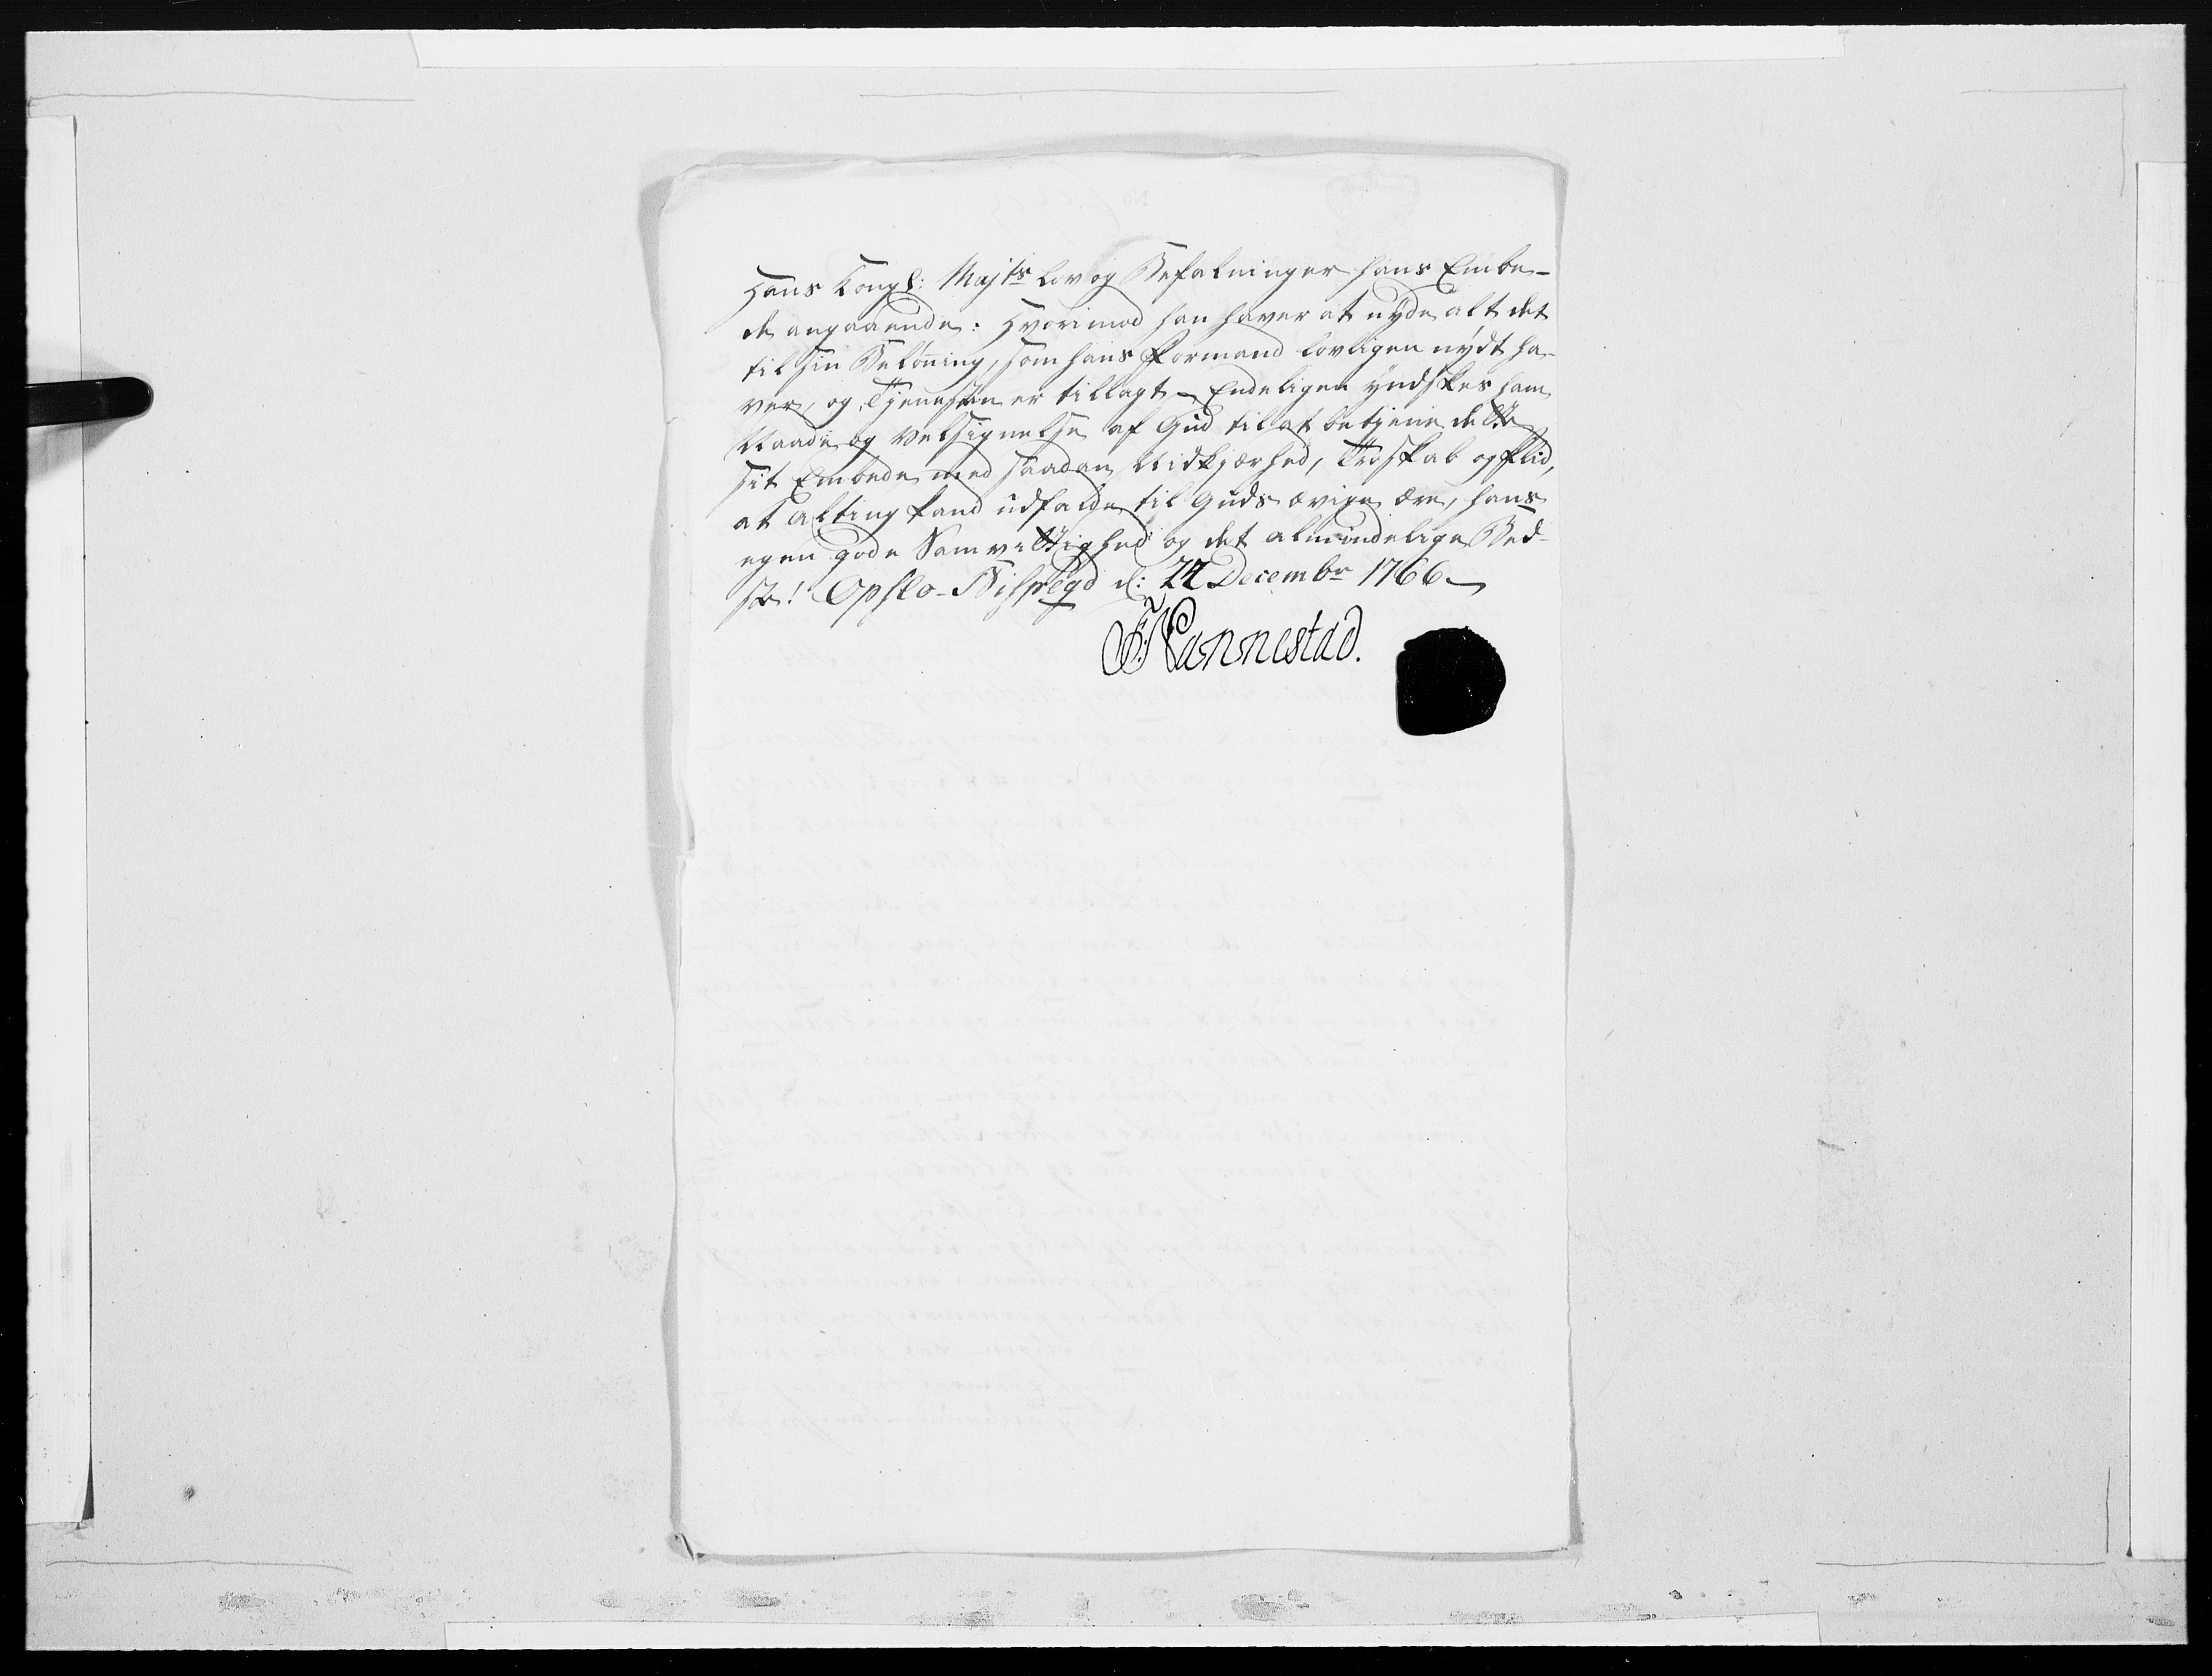 Hans Kongl: Majts lov og Befalninger hans Embe-
de angaaende. Hvorimod han haver at nyde alt det
til sin Belöning, som hans Formand lovligen nydt ha-
ver, og Tjenesten er tillagt. Endeligen yndskes ham
Naade og Velsignelse af Gud til at betjene dette
sit Embede med saadan Nidkjærhed, Troskab og Flid,
at alting kand udfalde til Guds ævige ære, hans
egen gode Samvittighed og det almindelige Bed-
ste! Opslo-Bispegd d: 22 Decembr 1766
F: Nannestad.